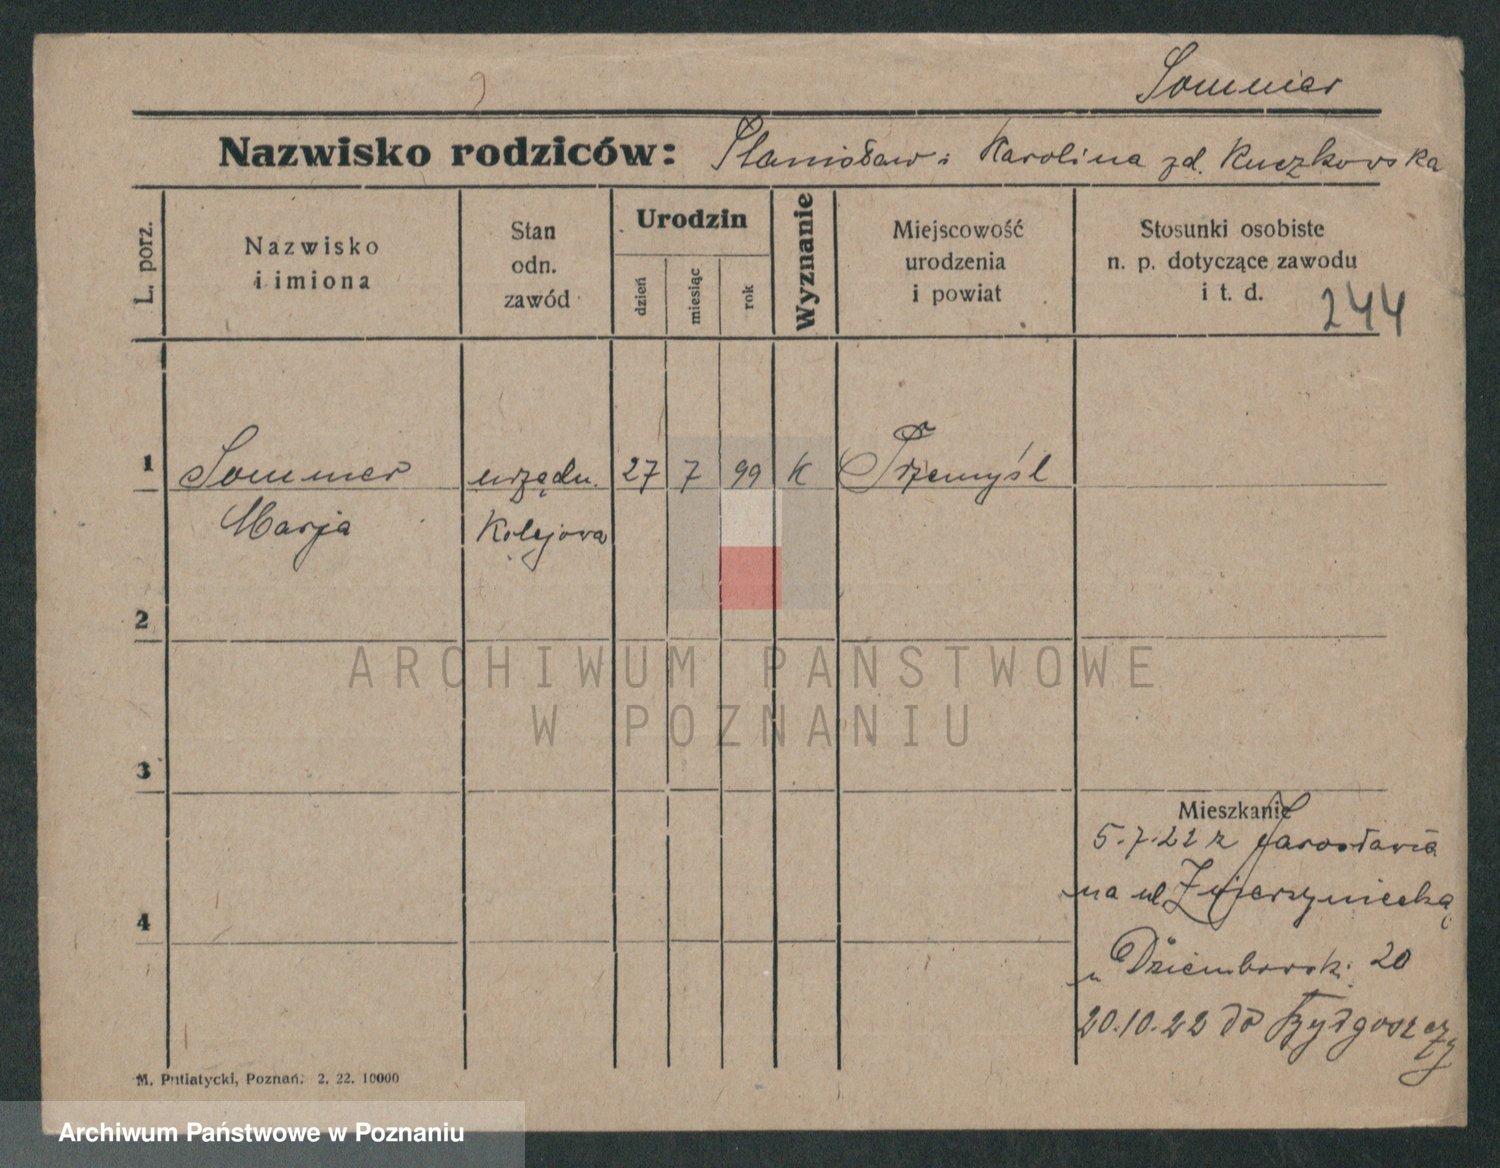 Sommer
Nazwisko rodziców: Stanisław i Karolina zd. Kuczkowska
L. porz.
Nazwisko i imiona
Stan odn. zawód
Urodzin
dzień
miesiąc
rok
Wyznanie
Miejscowość urodzenia i powiat
Stosunki osobiste n. p. dotyczące zawodu i t. d.
244
1 Sommer urzędn. 27 7 99 K Przemyśl
Marja Kolejowa
2
ARCHIWUM PAŃSTWOWE
W POZNANIU
3
Mieszkanie
5.7.22 z Jarosławia
4 na ul Zwierzyniecką
u 20
20.10.22 do Bydgoszczy
M. Putiatycki, Poznań. 2. 22. 10000
Archiwum Państwowe w Poznaniu